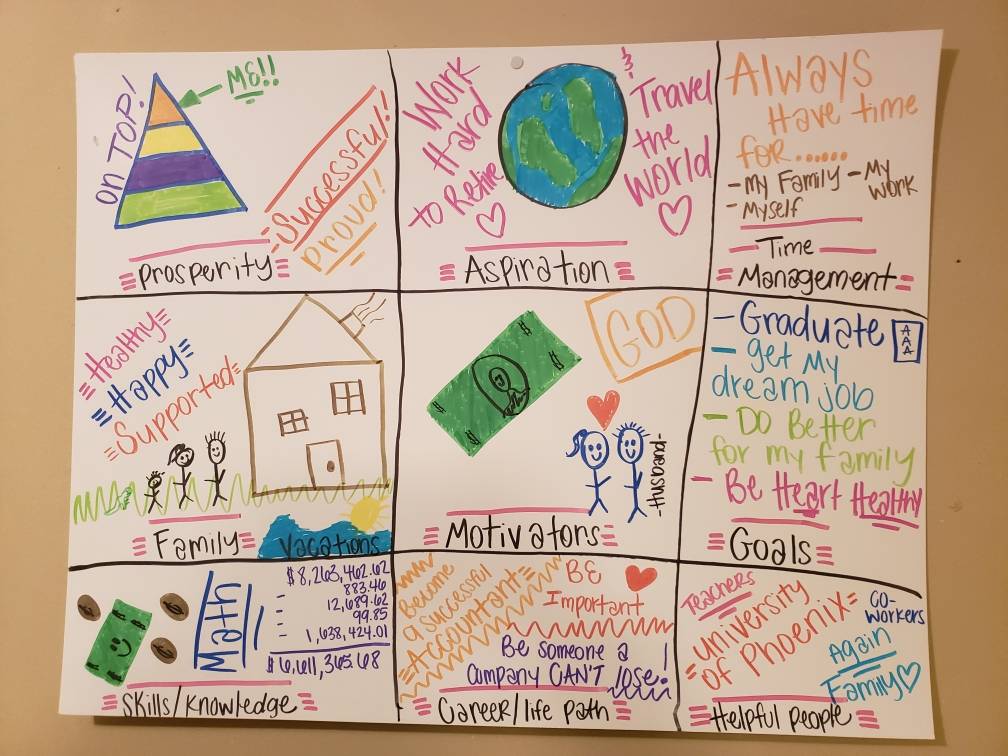 ON TOP!
ME!!
-Successful!
proud!
Prosperity
Work
Hard
to Retire
&
Travel
the
World
Aspiration
Always
Have time
for......
- My Family - My
Work
- Myself
Time
Management
Healthy
Happy
Supported
Family
Vacations
$
$
$
$
GOD
-Husband
Motivators
- Graduate
A
A
A
- get My
dream job
- DO Better
for my family
- Be Heart Healthy
Goals
Math
$8,263,462.62
- 883.46
- 12,689.62
- 99.85
- 1,638,424.01
$6,611,365.68
Skills/Knowledge
Become
a successful
Accountant
BE
Important
Be someone a
Company CAN'T lose!
Career/life Path
Teachers
University
of Phoenix
CO-
WORKERS
Again
Family
Helpful People